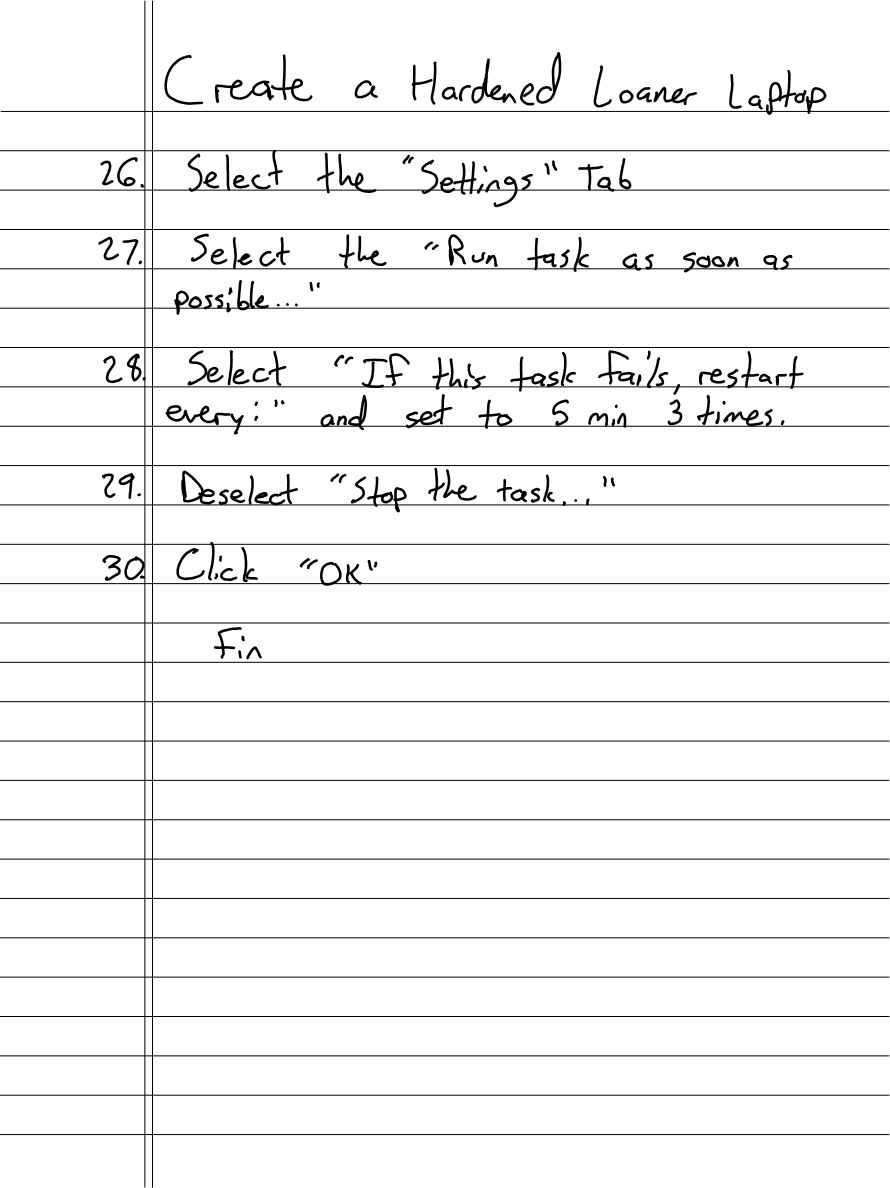 Create a Hardened Loaner Laptop
26. Select the "Settings" Tab
27. Select the "Run task as soon as
possible..."
28. Select "If this task fails, restart
every:" and set to 5 min 3 times.
29. Deselect "Stop the task..."
30. Click "OK"
Fin